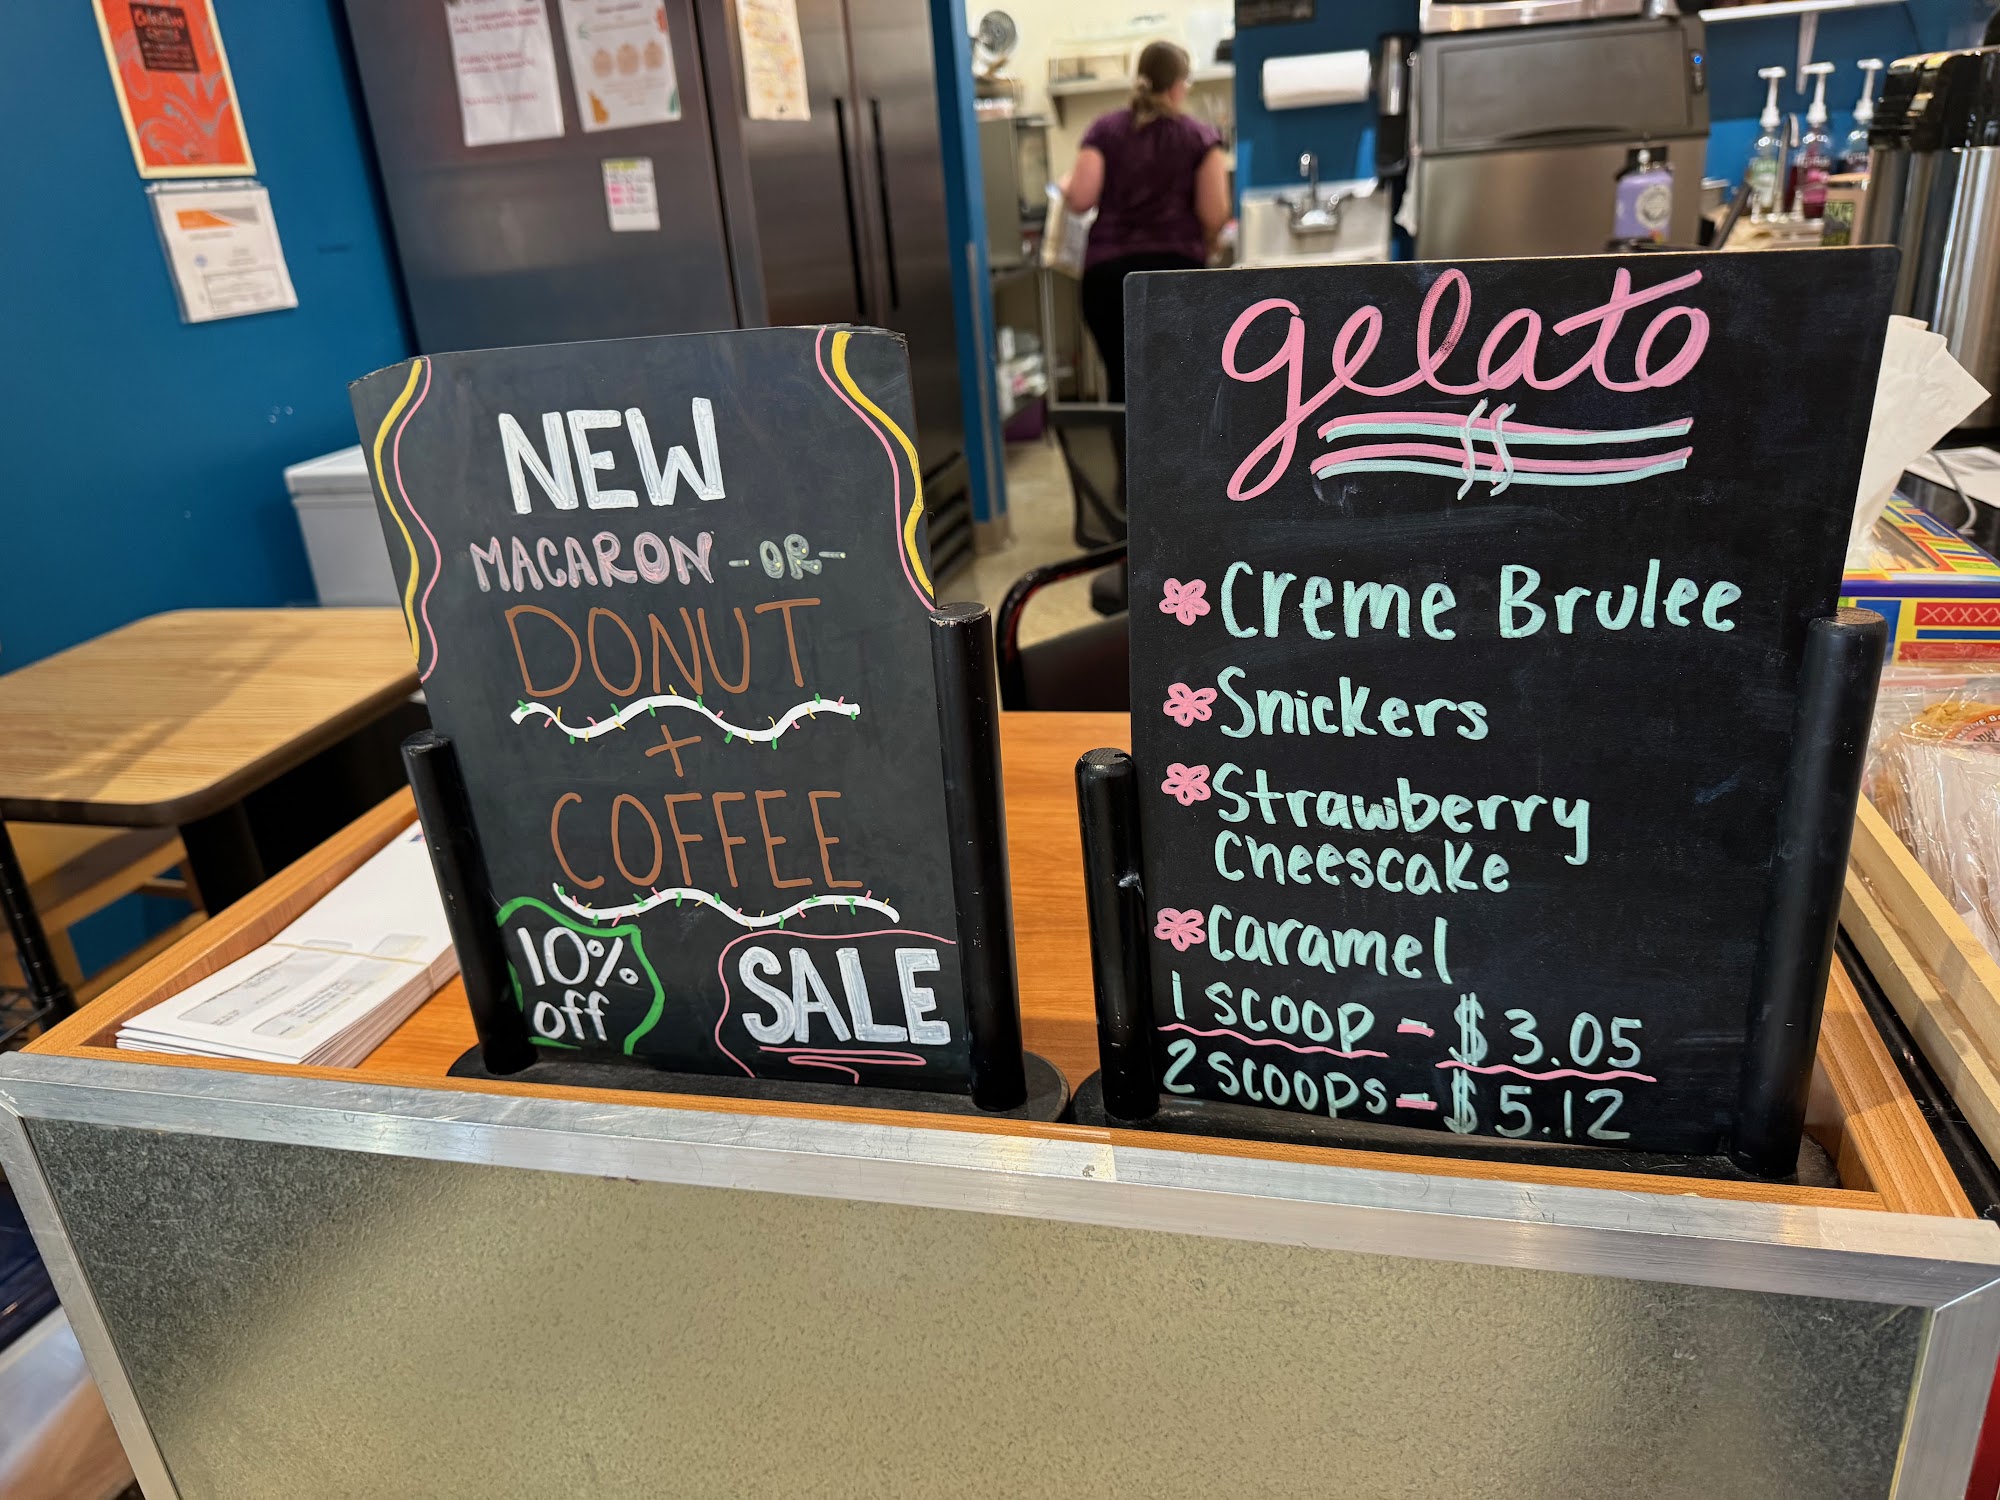 NEW
MACARON -OR-
DONUT
+
COFFEE
10%
off
SALE
gelato
Creme Brulee
Snickers
Strawberry
Cheesecake
Caramel
1 scoop - $3.05
2 scoops - $5.12